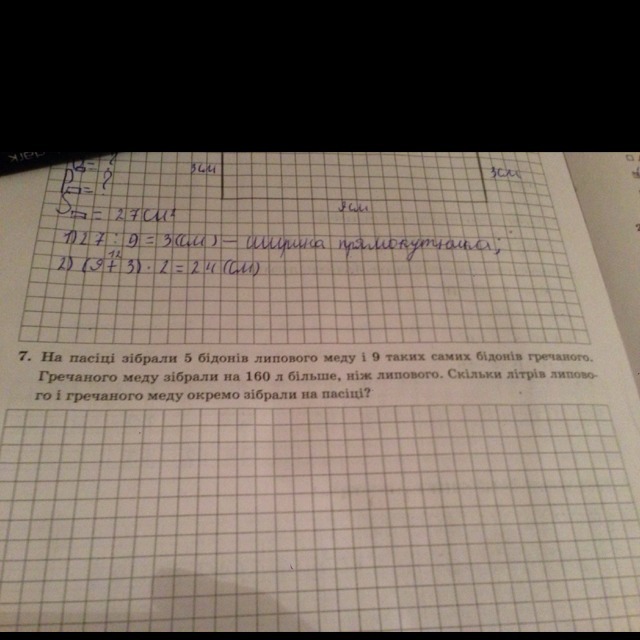 В = ?
P▭ = ?
S▭ = 27 см²
3см
3см
9см
1) 27 : 9 = 3 (см) – ширина прямокутника;
12
2) (9 + 3) · 2 = 24 (см)
7. На пасіці зібрали 5 бідонів липового меду і 9 таких самих бідонів гречаного.
Гречаного меду зібрали на 160 л більше, ніж липового. Скільки літрів липово-
го і гречаного меду окремо зібрали на пасіці?